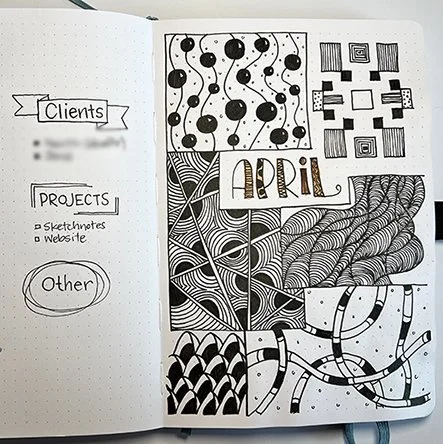 Clients
PROJECTS
Sketchnotes
Website
Other
APRIL